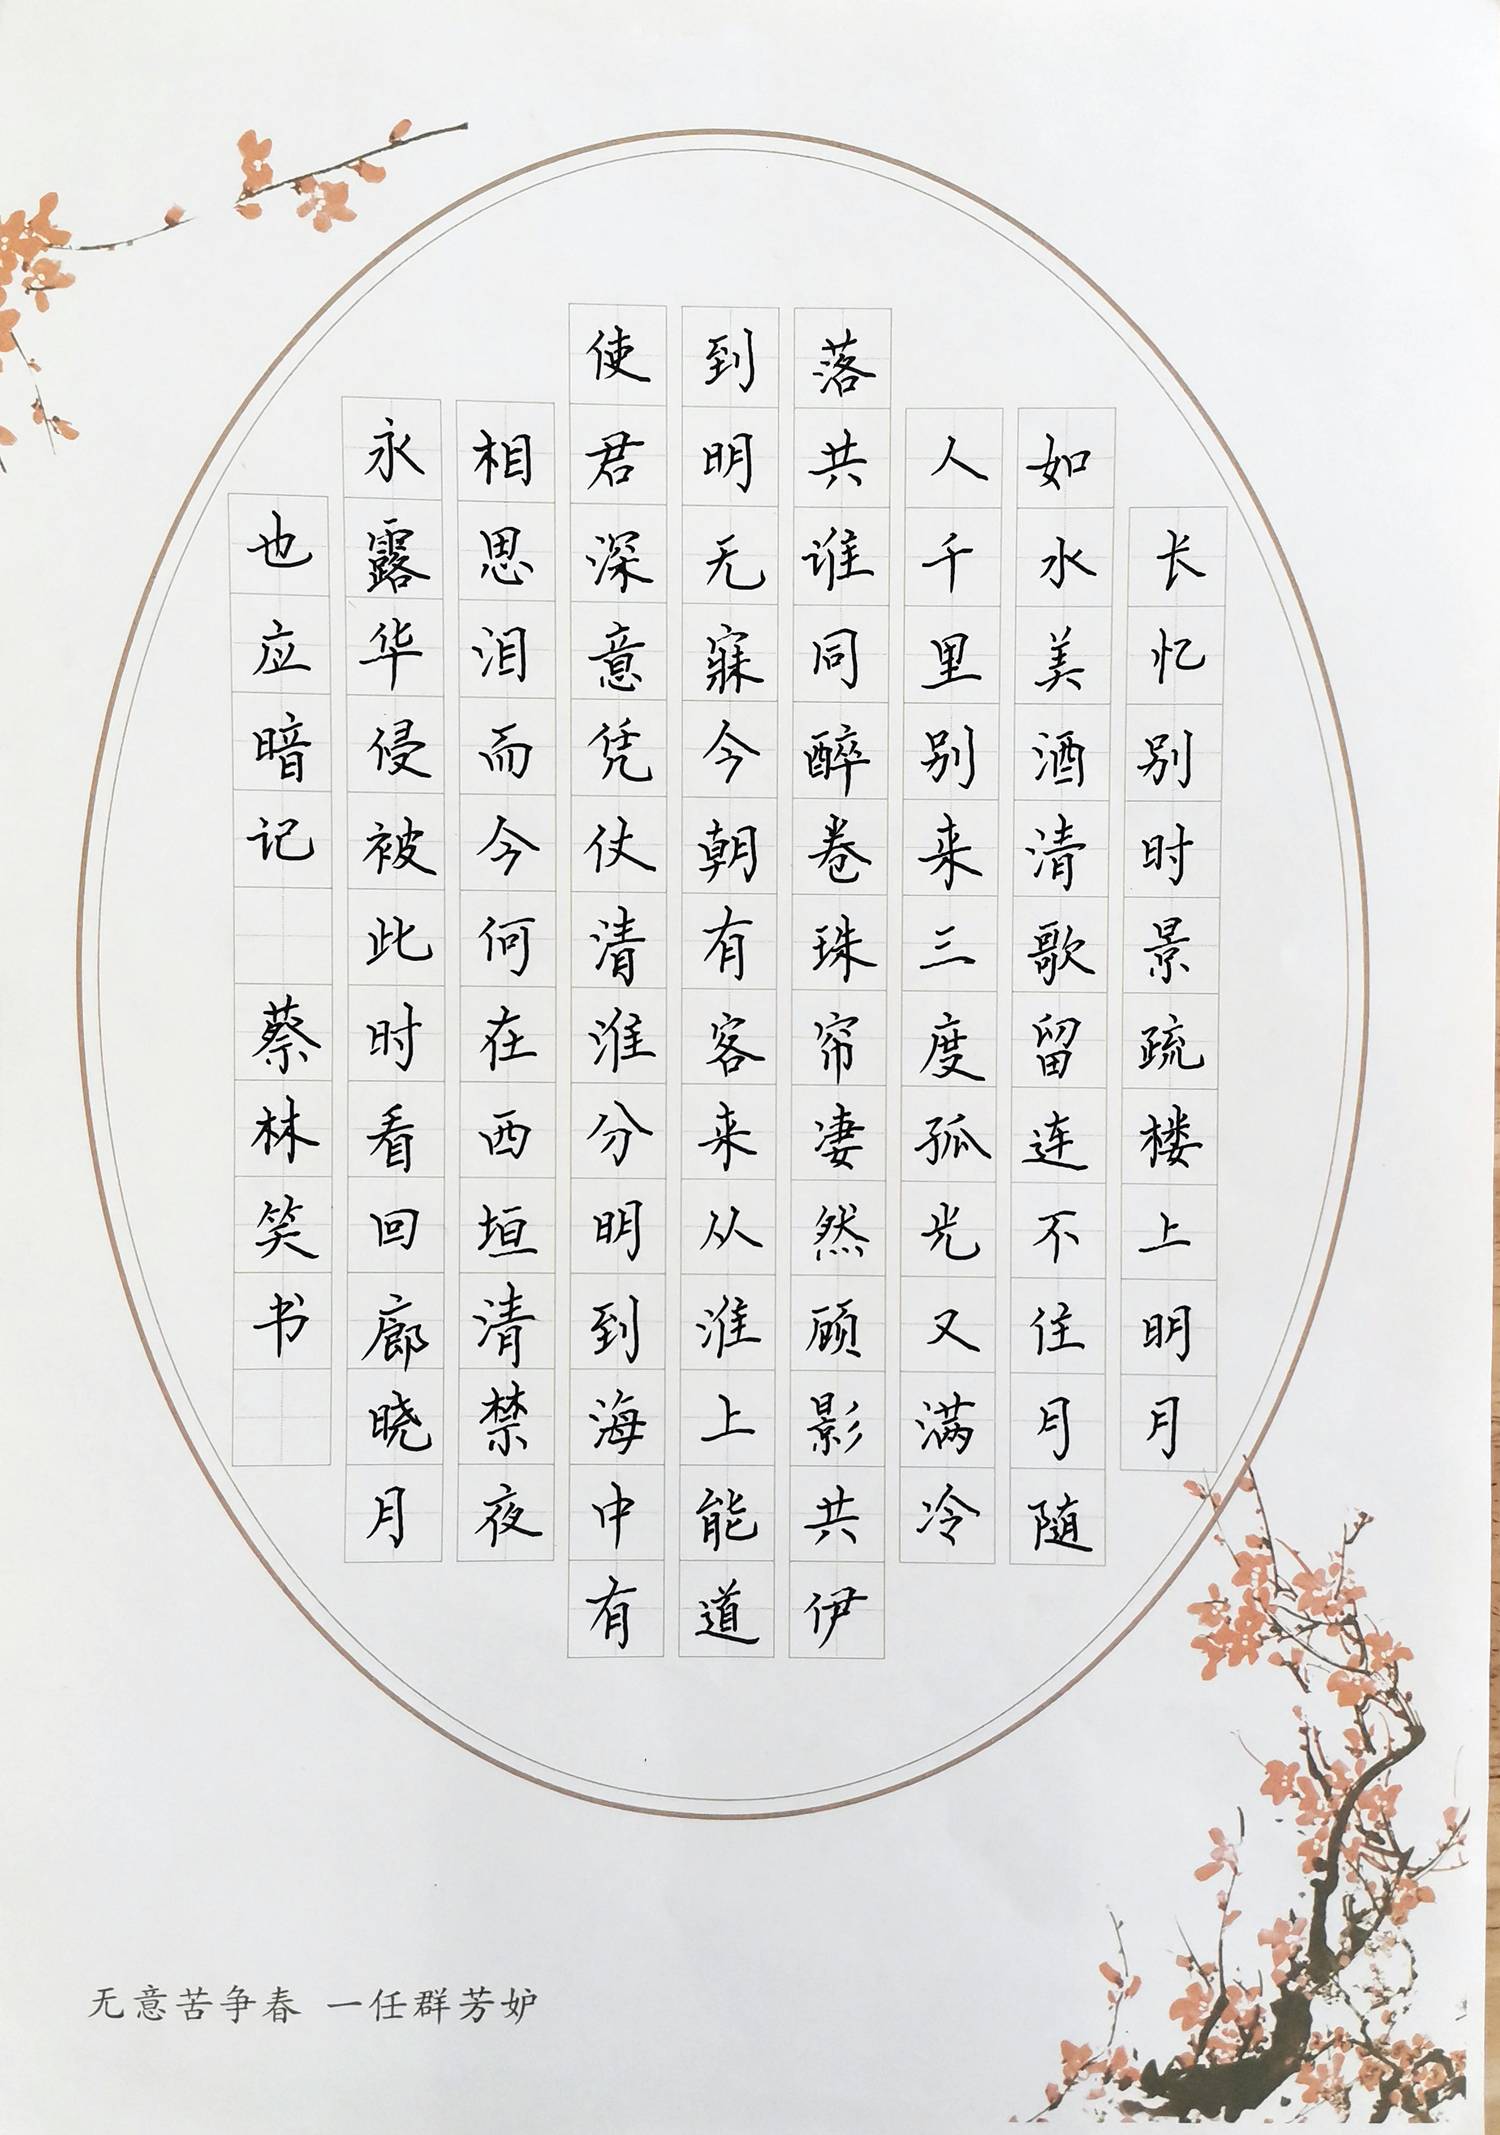 长忆别时景疏楼上明月
如水美酒清歌留连不住月随
人千里别来三度孤光又满冷
落共谁同醉卷珠帘凄然顾影共伊
到明无寐今朝有客来从淮上能道
使君深意凭仗清淮分明到海中有
相思泪而今何在西垣清禁夜
永露华侵被此时看回廊晓月
也应暗记 蔡林笑书
无意苦争春 一任群芳妒